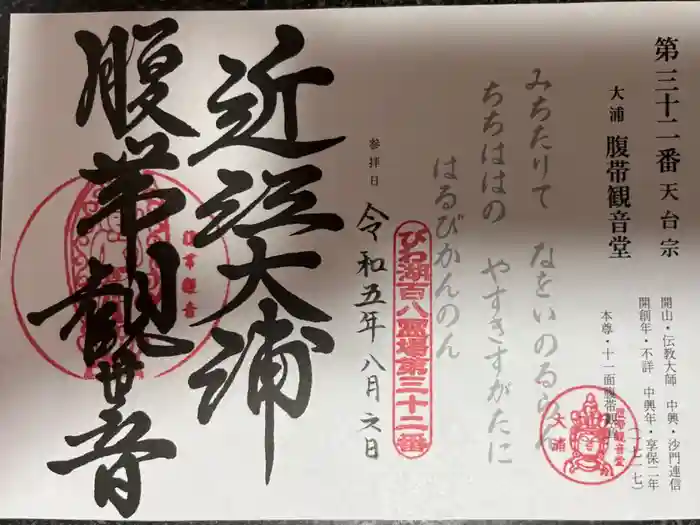 第三十二番 天台宗
大浦 腹帯観音堂
開山・伝教大師 中興・沙門連信
開創年・不詳 中興年・享保二年
(一七一七)
本尊・十一面腹帯観音
腹帯観音堂
大浦
みちたりて なをいのるらん
ちちははの やすきすがたに
はるびかんのん
びわ湖百八霊場第三十二番
参拝日
令和五年八月六日
近江大浦
腹帯観世音